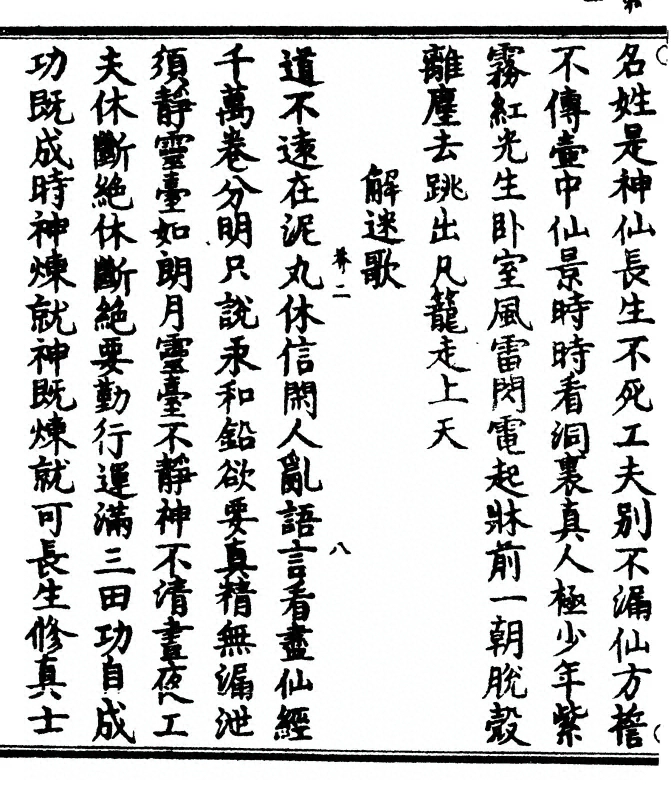 名姓是神仙長生不死工夫別不漏仙方
不傳壷中仙景時時看洞裏真人極少年紫
霧紅光生卧室風雷閃電起牀前一朝脫殼
離塵去跳出凡籠走上天
解迷歌
卷二
八
道不遠在泥丸休信閑人亂語言看盡仙經
千萬卷分明只說汞和鉛欲要真精無漏泄
須靜靈臺如朗月靈臺不靜神不清晝夜工
夫休斷絶休斷絶要勤行運滿三田功自成
功既成時神煉就神既煉就可長生修真士